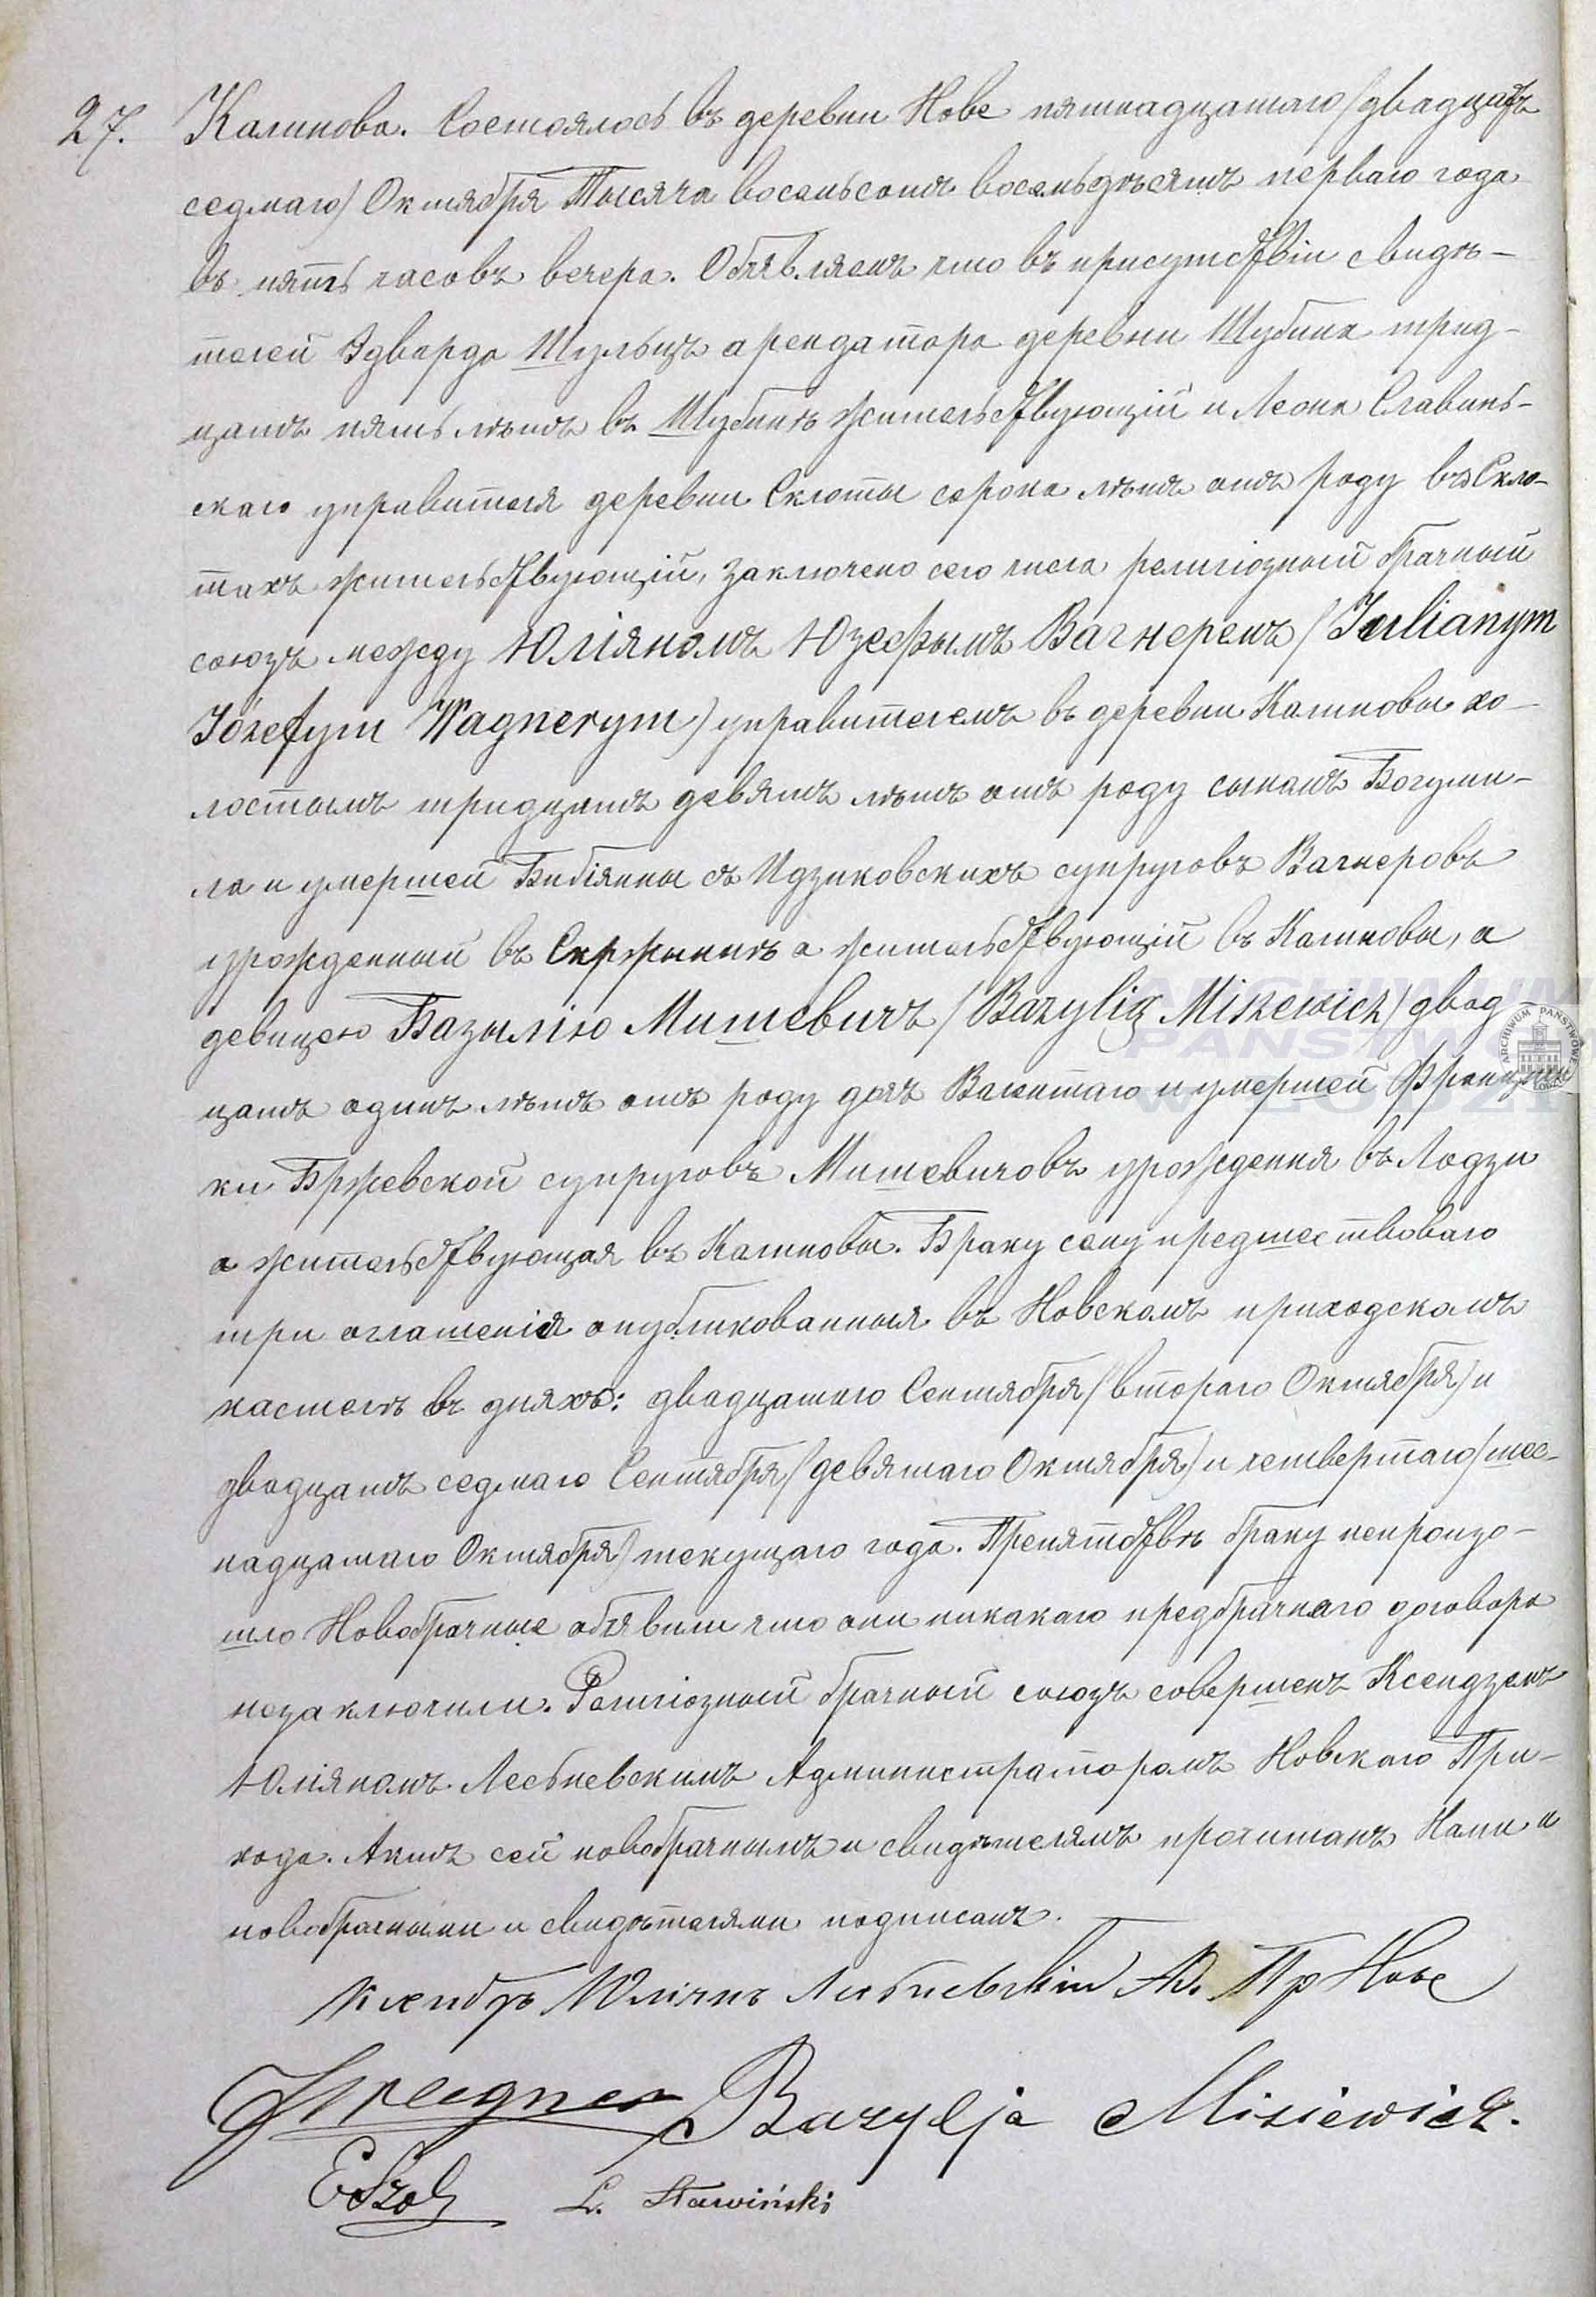 27. Калинова. Состоялось въ деревни Нове пятнадцатаго /двадцать
седмаго/ Октября Тысяча восемьсотъ восемьдѣсятъ перваго года
въ пять часовъ вечера. Объявляемъ что въ присутствіи свидѣ-
телей Эдварда Шульцъ арендатора деревни Шубина трид-
цать пять лѣтъ въ Шубинѣ жительствующій и Леона Славинь-
скаго управителя деревни Склоты сорока лѣтъ отъ роду въ Скло-
тахъ жительствующій, заключено сего числа религіозный брачный
союзъ между Юліяномъ Юзефымъ Вагнеремъ /Julianym
Józefym Wagnerym/ управителемъ въ деревни Калиновы хо-
лостымъ тридцать девять лѣтъ отъ роду сынамъ Богуми-
ла и умершей Бибіянны съ Идзиковскихъ супруговъ Вагнеровъ
урожденный въ Скржынкѣ а жительствующій въ Калиновы, а
девицею Базылію Мишевичъ /Bazylią Miszewicz/ двад
цать одинъ лѣтъ отъ роду дочъ Валентаго и умершей Франциш
ки Бржевской супруговъ Мишевичовъ урожденна въ Лодзи
а жительствующая въ Калиновы. Браку сему предшествовало
три оглашенія опубликованныя въ Новскомъ приходскомъ
костелѣ въ дняхъ: двадцатаго Сентября /втораго Октября/ и
двадцать седмаго Сентября /девятаго Октября/ и четвертаго /шес-
надцатаго Октября/ текущаго года. Препятствѣ браку непроизо-
шло Новобрачные объявили что они никакаго предбрачнаго договора
незаключили. Религіозный брачный союзъ совершенъ Ксендземъ
Юліяномъ Лесьневскимъ Администраторомъ Новскаго При-
хода. Актъ сей новобрачнымъ и свидѣтелямъ прочитанъ Нами и
новобрачными и свидѣтелями подписанъ.
Ксендзъ Юліянъ Лесьневскій Ад. Пр Нове
JWagner Bazylja Misiewicz.
E Szolc L. Sławiński
ARCHIWUM
PAŃSTWOWE
W ŁODZI